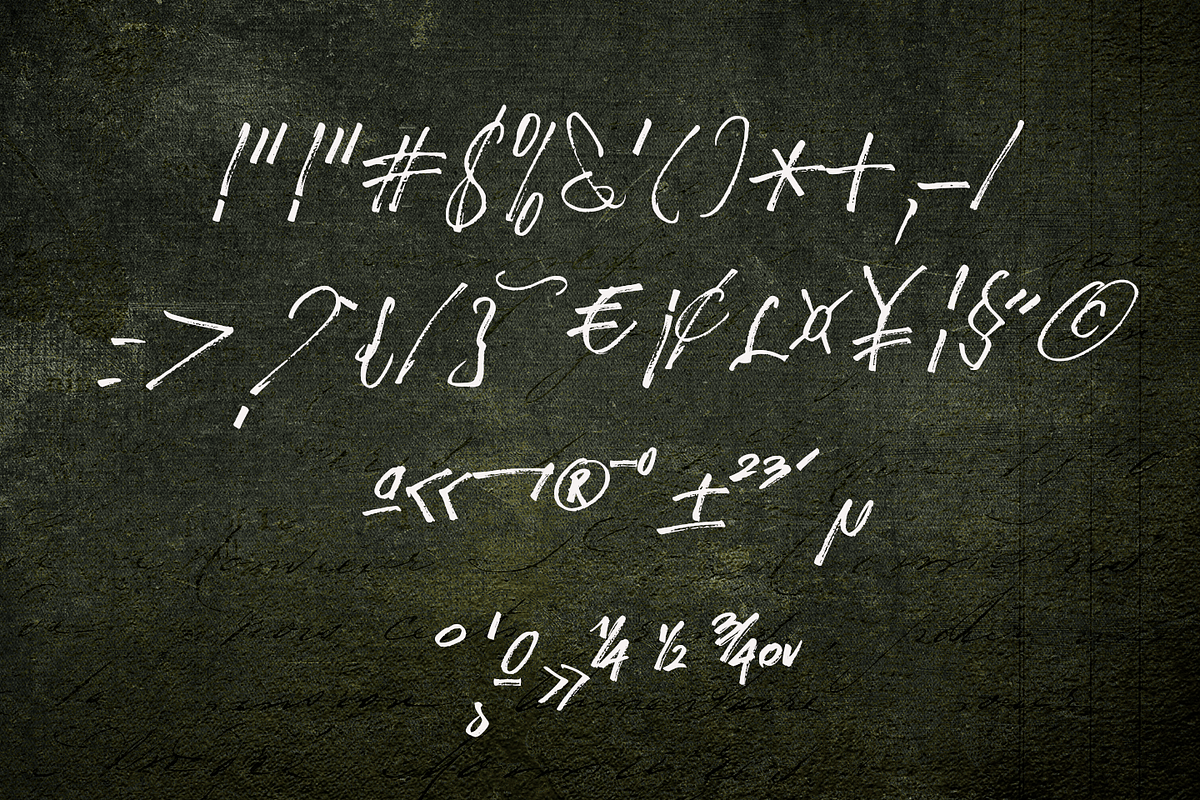 !"!"#$%&'()*+,-/
=>?{/}~€¡¢£¤¥¦§¨©
ª«¬®¯°±²³´µ
¸º¹º»¼½¾